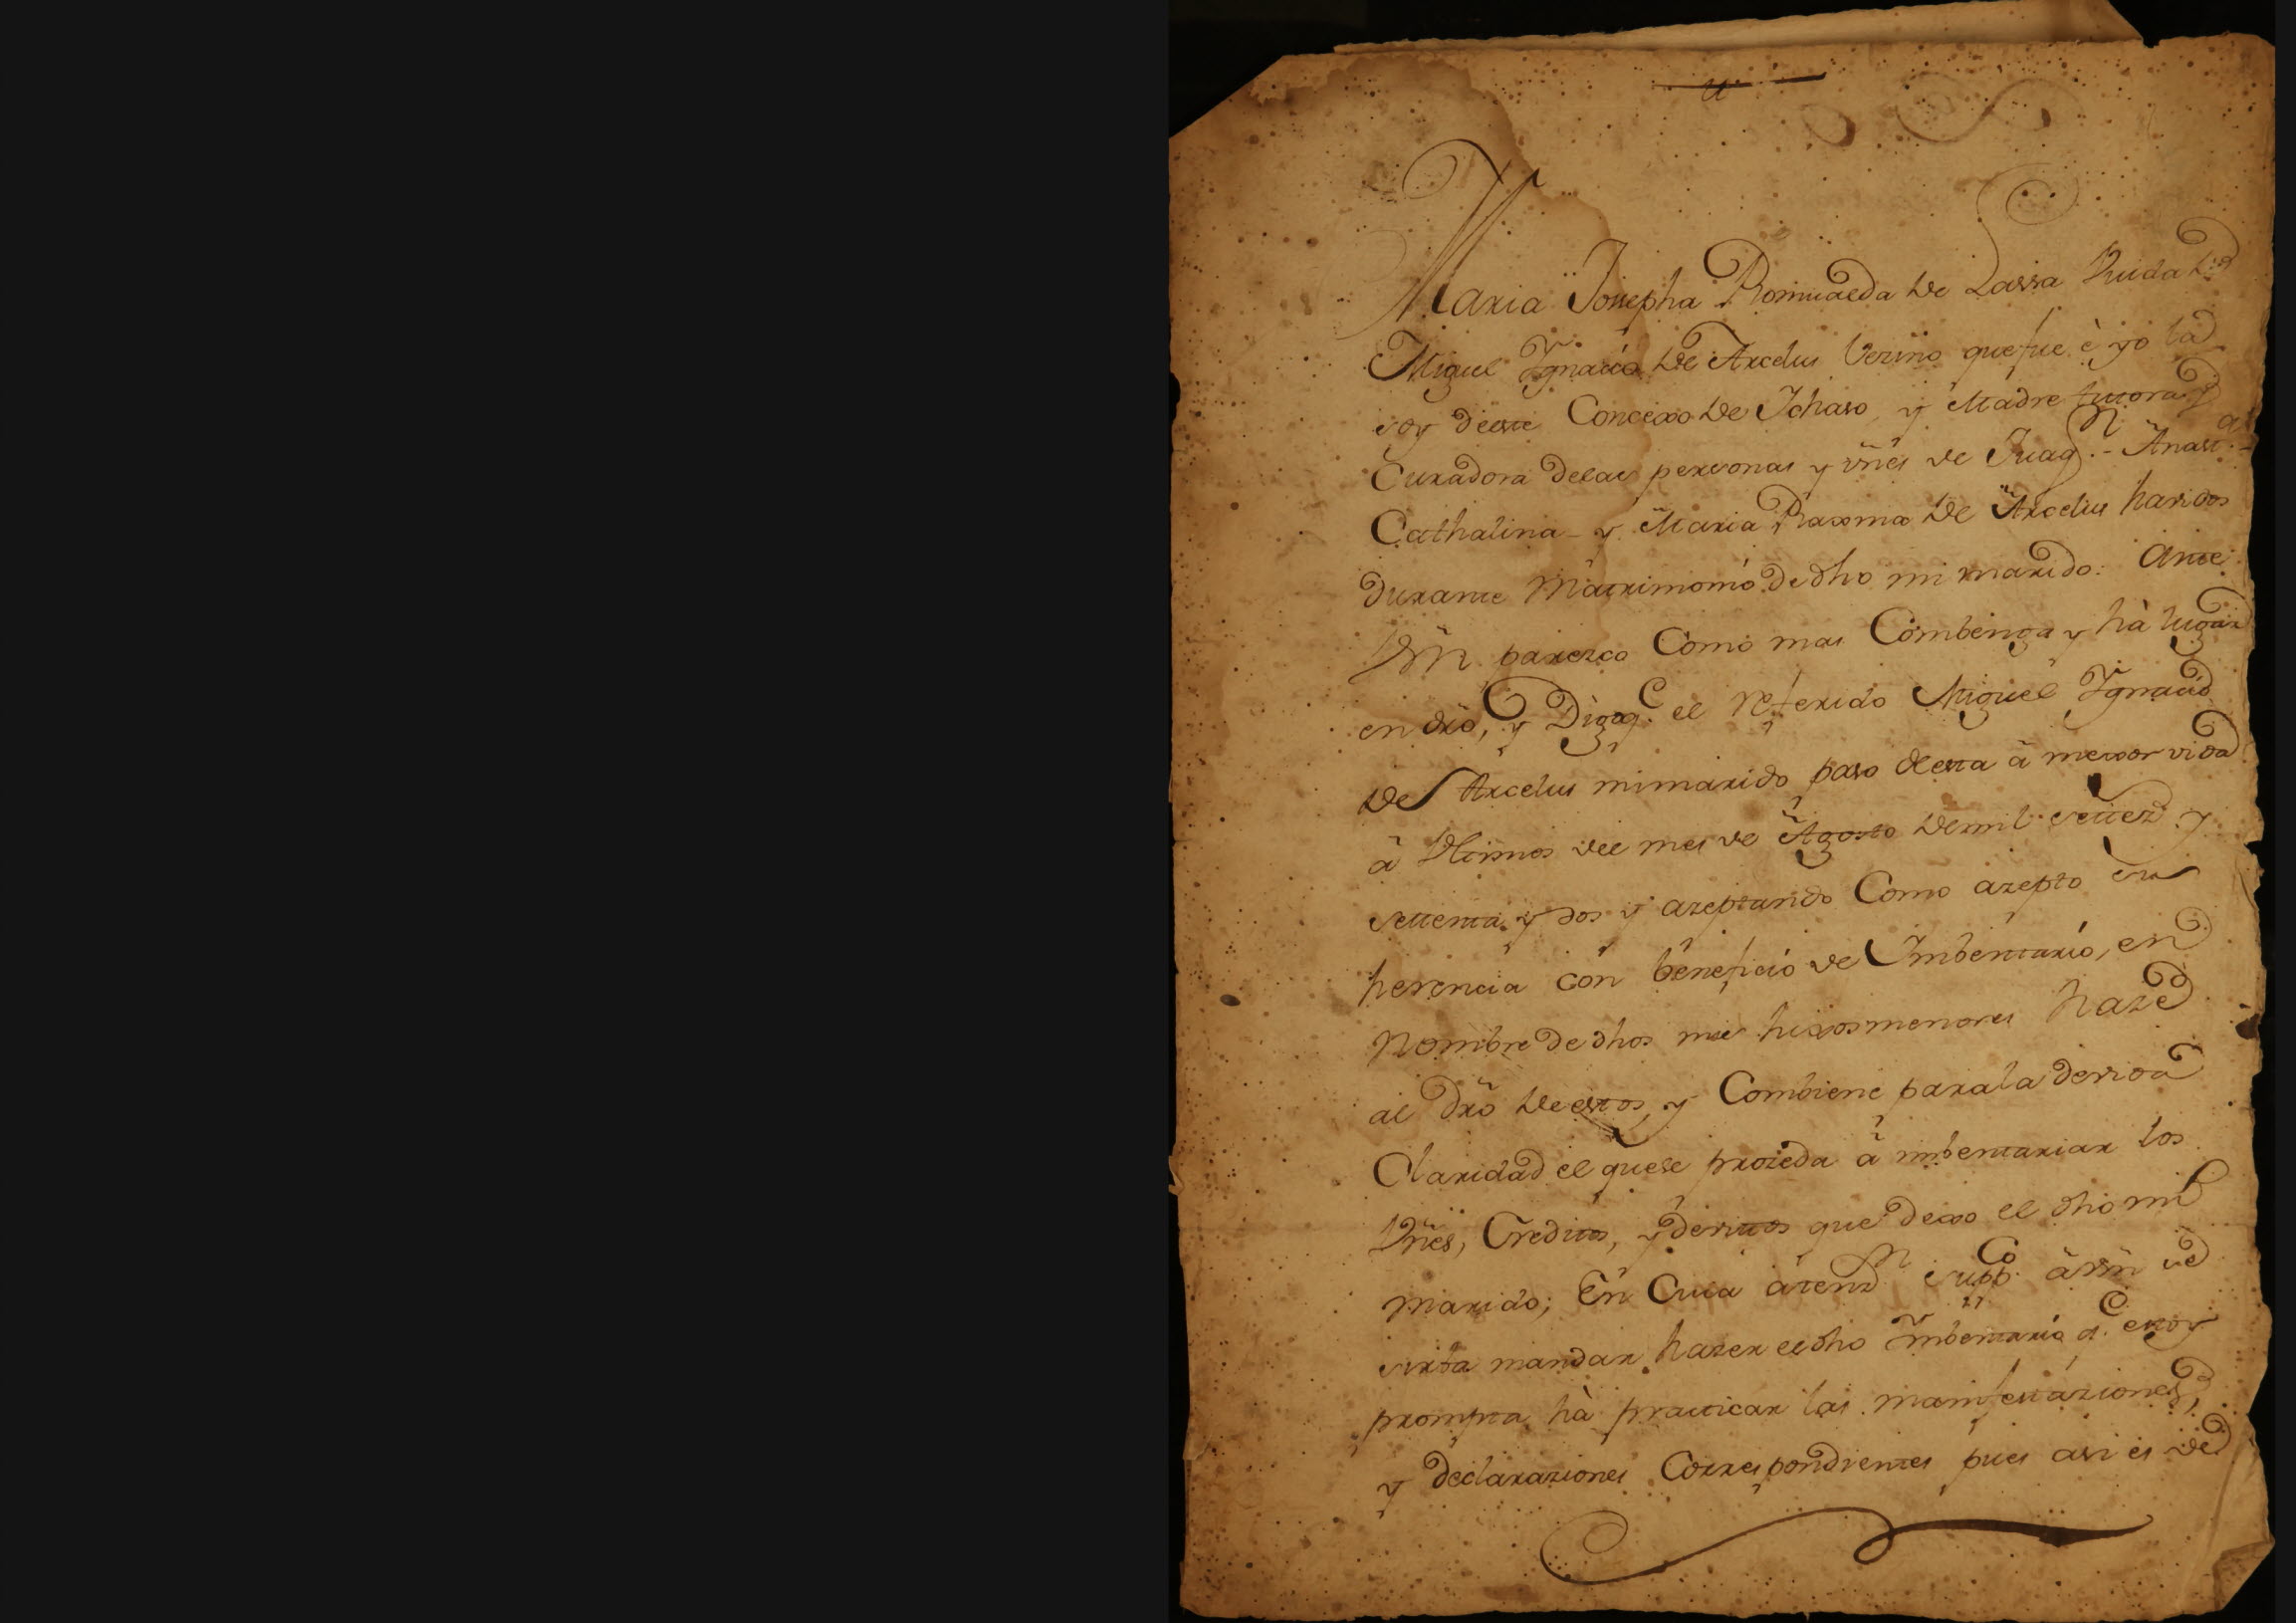 Maria Josepha Romualda de Lassa Viuda de
Miguel Ygnacio de Arcelus Vezino que fue è yo la
soy deste Concexo de Ichaso, y Madre tutora y
Curadora delas personas y vñes de Juaqn.- Anasta.-
Cathalina - y Maria Raxma de Arcelus havidos
durante Matrimonio de dho mi marido: Ante
Vm parezco Como mas Combenga y hà lugar
en dro, y Digo qe. el referido Miguel Ygnacio
de Arcelus mi marido paso desta à mexor vida
à Vltimos del mes de Agosto de mil settez. y
settenta y dos y azeptando Como azepto su
herencia con beneficio de Imbentario, en
Nombre de dhos mis hixos menores haze
al dro de estos, y Combiene para la devida
Claridad el que se prozeda à imbentariar los
Vñes, Creditos, y devitos que dexo el dho mi
marido; En Cuia atenzn suppco à Vm se
sirba mandar hazer el dho Imbentario qe. estoy
prompta hà practicar las manifestaziones,
y declaraziones Correspondientes pues asi es de